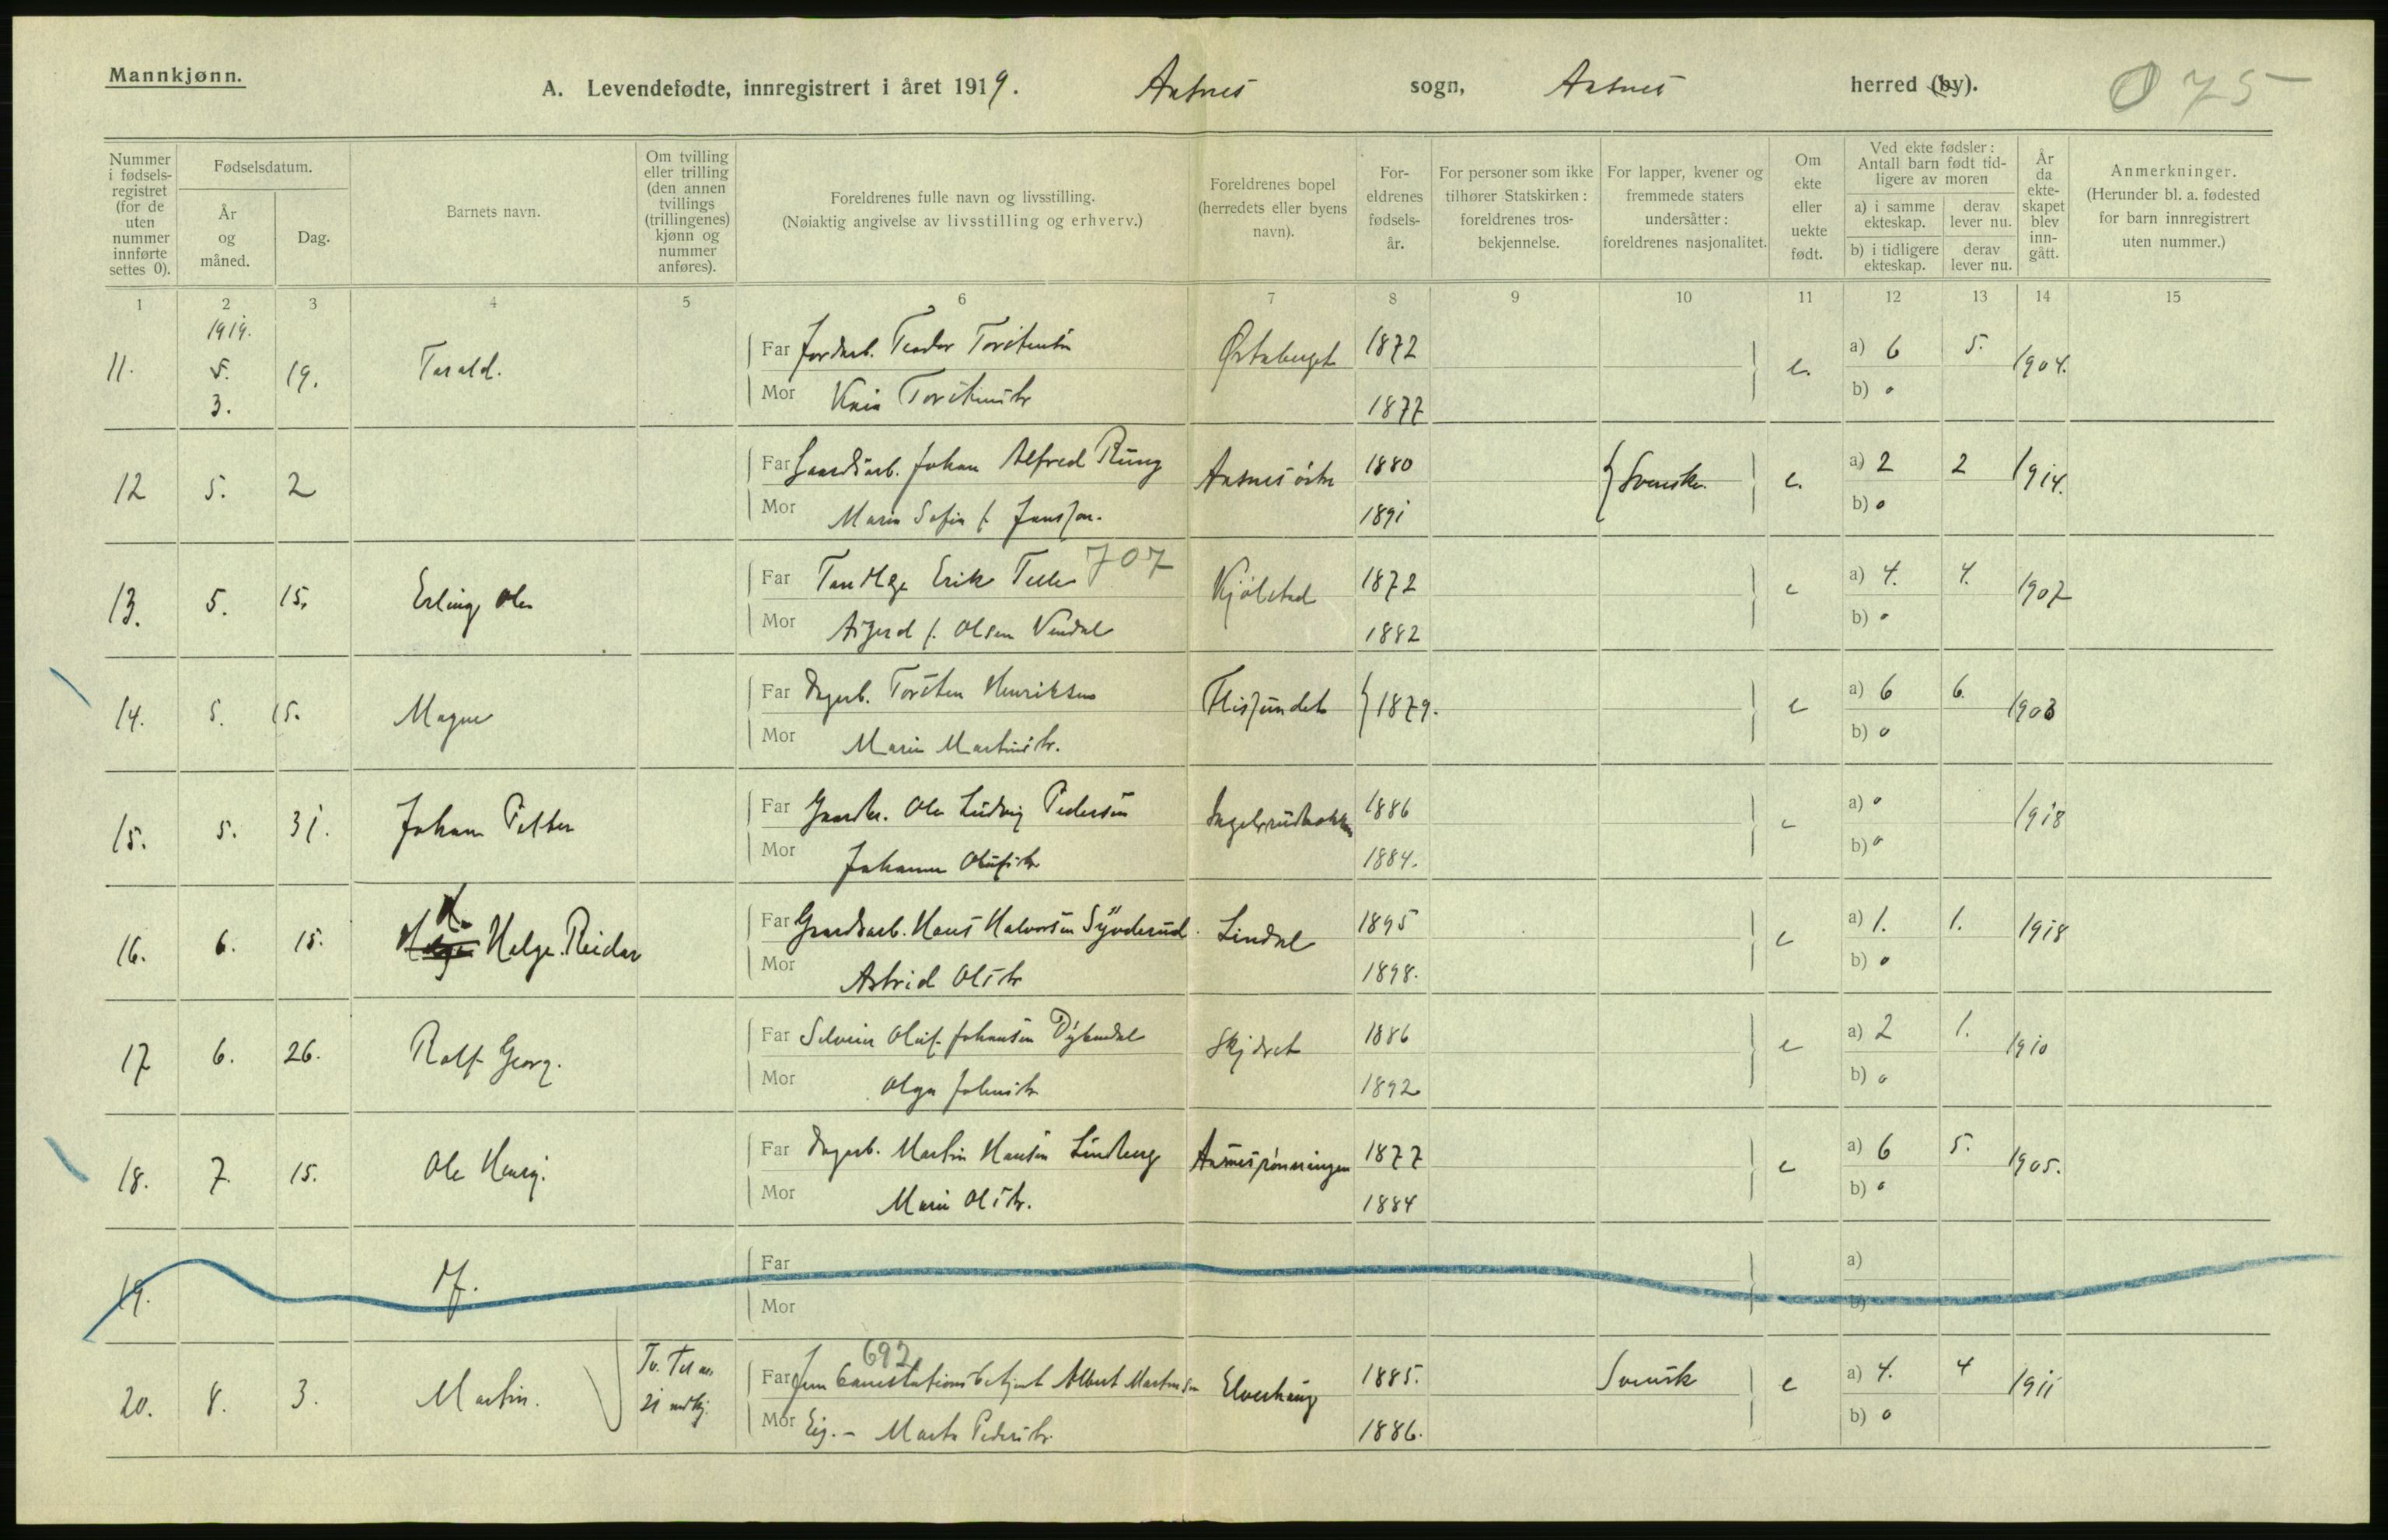 Mannkjønn.
A. Levendefødte, innregistrert i året 1919. Aasnes sogn, Aasnes herred (by). 075
Nummer i fødselsregistret (for de uten nummer innførte settes 0).
Fødselsdatum.
År og måned.
Dag.
Barnets navn.
Om tvilling eller trilling (den annen tvillings (trillingenes) kjønn og nummer anføres).
Foreldrenes fulle navn og livsstilling.
(Nøiaktig angivelse av livsstilling og erhverv.)
Foreldrenes bopel (herredets eller byens navn).
Foreldrenes fødselsår.
For personer som ikke tilhører Statskirken: foreldrenes trosbekjennelse.
For lapper, kvener og fremmede staters undersåtter: foreldrenes nasjonalitet.
Om ekte eller uekte født.
Ved ekte fødsler: Antall barn født tidligere av moren
a) i samme ekteskap. derav lever nu.
b) i tidligere ekteskap. derav lever nu.
År da ekteskapet blev inngått.
Anmerkninger.
(Herunder bl. a. fødested for barn innregistrert uten nummer.)
1 2 3 4 5 6 7 8 9 10 11 12 13 14 15
1919.
11. 5. 3. 19. Tarald. Far Jordarb. Teodor 1872 e. a) 6 5. 1904.
Mor 1877 b) 0
12 5. 2 Far Gaardsarb. Johan Alfred Rung Aasnes østre 1880 Svenske e. a) 2 2 1914.
Mor Maria Sofia f. Jansson. 1891 b) 0
13. 5. 15. Erling Ole Far Erik 707 Kjølstad 1872 e a) 4. 4. 1907
Mor f. Olsen 1882 b) 0
14. 5. 15. Magne Far Dagarb. Torsten Henriksen Flissundet 1879. e a) 6 6. 1903
Mor Marie Martinsdtr. b) 0
15. 5. 31. Johan Petter Far Gaardbr. Ole Ludvig Pedersen 1886 e a) 0 1918
Mor Johanne Olufsdtr 1884. b) 0
16. 6. 15. Helge Reidar Far Gaardsarb. Hans Halvorsen Synderud Lindal 1895 e a) 1. 1. 1918
Mor Astrid Olsdtr 1898. b) 0
17 6. 26. Rolf Georg. Far Selveier Oluf Johansen Dybendal 1886 e a) 2 1. 1910
Mor Olga 1892 b) 0
18. 7. 15. Ole Henry. Far Dagarb. Martin Hansen Lindberg 1877 e a) 6 5. 1905.
Mor Marie Olsdtr. 1884 b) 0
19. Far a)
Mor b)
692
20. 8. 3. Martin. Tv. 21 Far Jernbanestationsbetjent Albert Martinsen Elverhaug 1885. Svensk e a) 4. 4 1911
Mor Marta Pedersdtr. 1886. b) 0